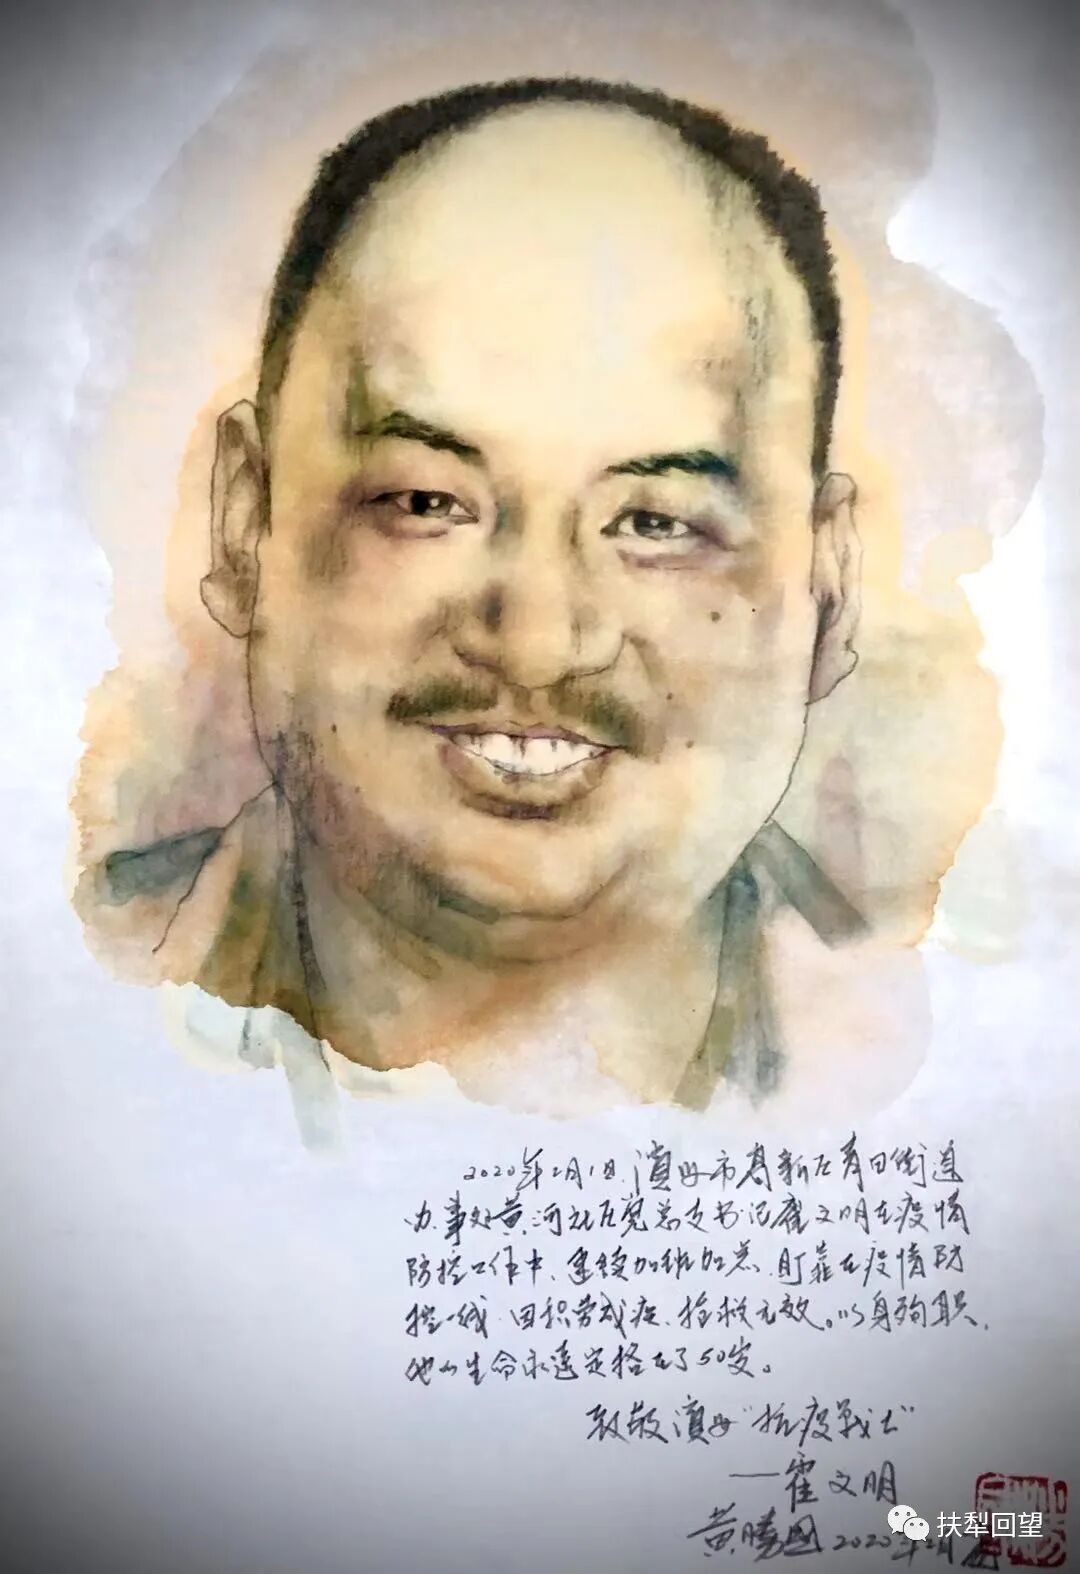 2020年2月1日，濮阳市高新区青田街道
办事处黄河社区党总支书记霍文明在疫情
防控工作中，连续加班加点，盯靠在疫情防
控一线，因积劳成疾，抢救无效。以身殉职，
他的生命永远定格在了50岁。
致敬"抗疫战士"
——霍文明
2020年2月
扶犁回望